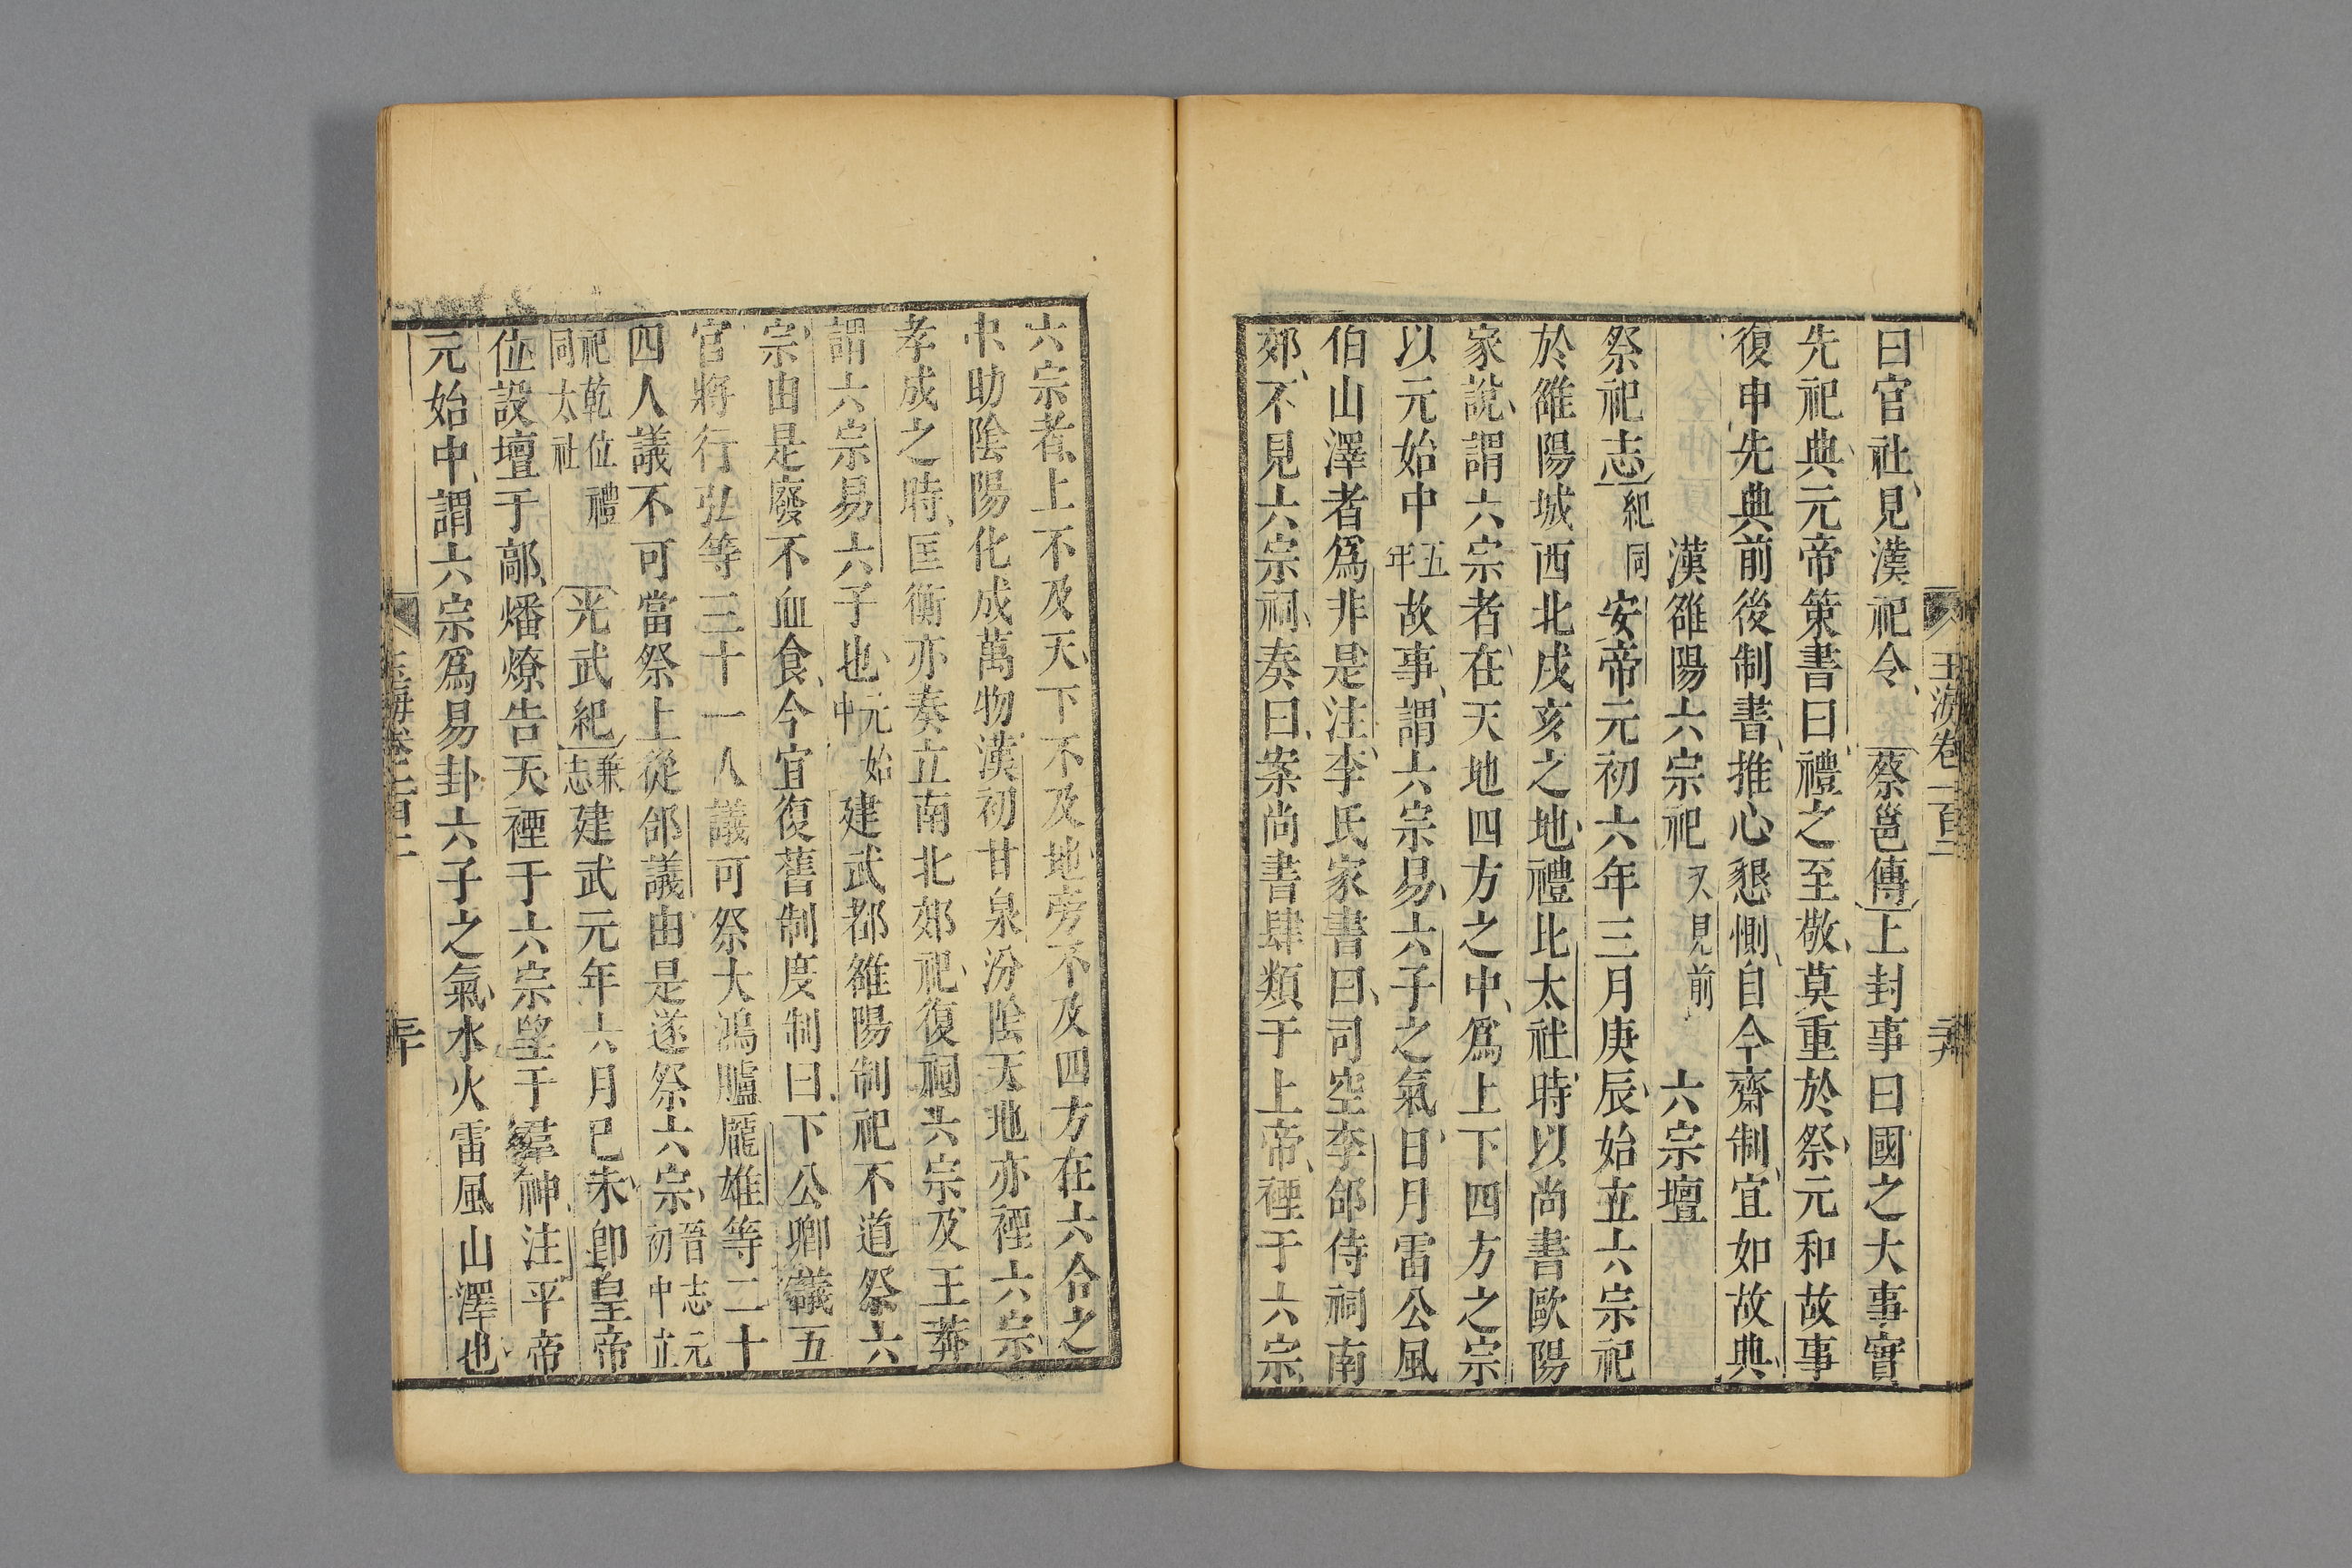 曰官社見漢祀令蔡邕傳上封事曰國之大事實
先祀典元帝策書曰禮之至敬莫重於祭元和故事
復申先典前後制書推心懇惻自今齋制宜如故典
漢雒陽六宗祀又見前六宗壇
祭祀志紀同安帝元初六年三月庚辰始立六宗祀
於雒陽城西北戌亥之地禮比太社時以尚書歐陽
家說謂六宗者在天地四方之中為上下四方之宗
以元始中五年故事謂六宗易六子之氣日月雷公風
伯山澤者為非是注李氏家書曰司空李郃侍祠南
郊不見六宗祠奏曰案尚書肆類于上帝禋于六宗
玉海卷一百二
六宗者上不及天下不及地旁不及四方在六合之
中助陰陽化成萬物漢初甘泉汾陰天地亦禋六宗
孝成之時匡衡亦奏立南北郊祀復祠六宗及王莽
謂六宗易六子也元始中建武都雒陽制祀不道祭六
宗由是廢不血食今宜復舊制度制曰下公卿議五
官將行弘等三十一人議可祭大鴻臚龐雄等二十
四人議不可當祭上從郃議由是遂祭六宗晉志元初中立
祀乾位禮同太社光武紀兼志建武元年六月己未卽皇帝
位設壇于鄗燔燎告天禋于六宗望于羣神注平帝
元始中謂六宗為易卦六子之氣水火雷風山澤也
玉海卷一百二
三十